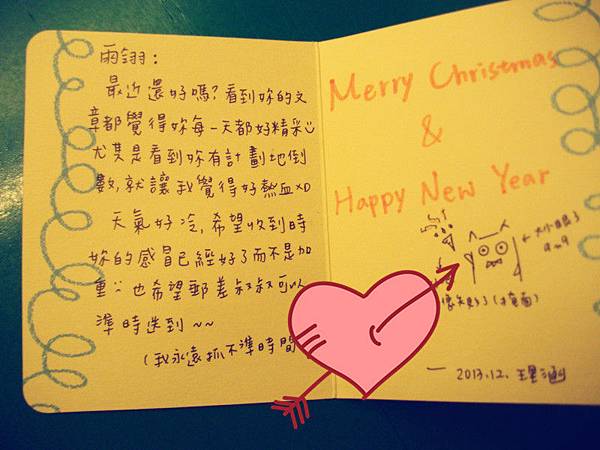 雨翎：
最近還好嗎？看到妳的文
章都覺得妳每一天都好精彩
尤其是看到妳有計劃地倒
數，就讓我覺得好熱血XD
天氣好冷，希望收到時
妳的感冒已經好了而不是加
重 也希望郵差叔叔可以
準時送到～～
（我永遠抓不準時間
Merry Christmas
&
Happy New Year
大小眼了
失敗了
2013.12.